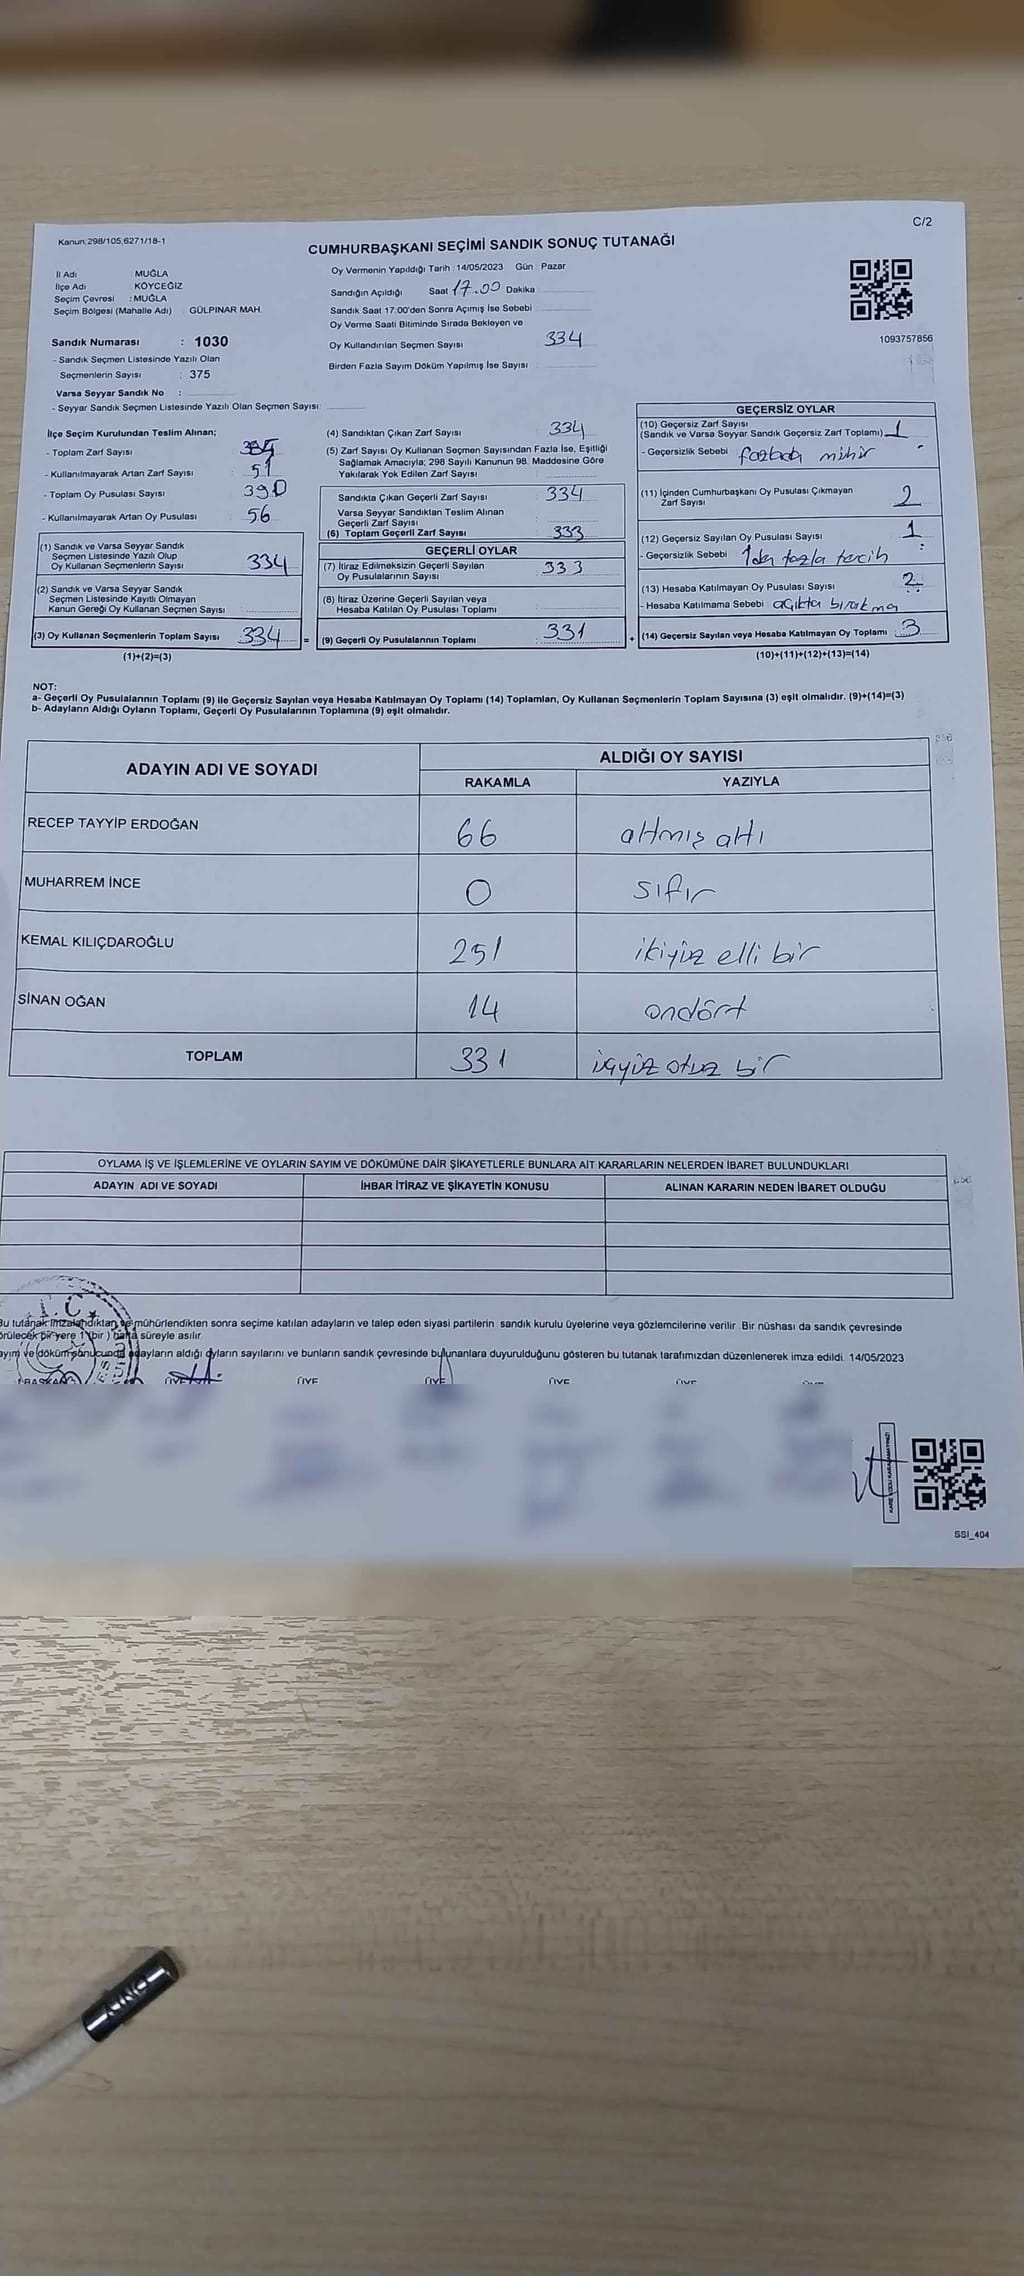 Kanun;298/105;6271/18-1
C/2
CUMHURBAŞKANI SEÇİMİ SANDIK SONUÇ TUTANAĞI
İl Adı MUĞLA
İlçe Adı KÖYCEĞİZ
Seçim Çevresi : MUĞLA
Seçim Bölgesi (Mahalle Adı) GÜLPINAR MAH.
Sandık Numarası : 1030
- Sandık Seçmen Listesinde Yazılı Olan
Seçmenlerin Sayısı : 375
Varsa Seyyar Sandık No :
- Seyyar Sandık Seçmen Listesinde Yazılı Olan Seçmen Sayısı:
Oy Vermenin Yapıldığı Tarih : 14/05/2023 Gün Pazar
Sandığın Açıldığı Saat 17.00 Dakika
Sandık Saat 17:00'den Sonra Açımış İse Sebebi
Oy Verme Saati Bitiminde Sırada Bekleyen ve
Oy Kullandırılan Seçmen Sayısı 334
Birden Fazla Sayım Döküm Yapılmış İse Sayısı
1093757856
İlçe Seçim Kurulundan Teslim Alınan;
- Toplam Zarf Sayısı :
- Kullanılmayarak Artan Zarf Sayısı : 51
- Toplam Oy Pusulası Sayısı : 390
- Kullanılmayarak Artan Oy Pusulası : 56
(1) Sandık ve Varsa Seyyar Sandık
Seçmen Listesinde Yazılı Olup
Oy Kullanan Seçmenlerin Sayısı 334
(2) Sandık ve Varsa Seyyar Sandık
Seçmen Listesinde Kayıtlı Olmayan
Kanun Gereği Oy Kullanan Seçmen Sayısı
(3) Oy Kullanan Seçmenlerin Toplam Sayısı 334 =
(1)+(2)=(3)
(4) Sandıktan Çıkan Zarf Sayısı : 334
(5) Zarf Sayısı Oy Kullanan Seçmen Sayısından Fazla İse, Eşitliği
Sağlamak Amacıyla; 298 Sayılı Kanunun 98. Maddesine Göre
Yakılarak Yok Edilen Zarf Sayısı
Sandıkta Çıkan Geçerli Zarf Sayısı : 334
Varsa Seyyar Sandıktan Teslim Alınan
Geçerli Zarf Sayısı
(6) Toplam Geçerli Zarf Sayısı : 333
GEÇERLİ OYLAR
(7) İtiraz Edilmeksizin Geçerli Sayılan
Oy Pusulalarının Sayısı : 333
(8) İtiraz Üzerine Geçerli Sayılan veya
Hesaba Katılan Oy Pusulası Toplamı
(9) Geçerli Oy Pusulalarının Toplamı : 331 +
GEÇERSİZ OYLAR
(10) Geçersiz Zarf Sayısı
(Sandık ve Varsa Seyyar Sandık Geçersiz Zarf Toplamı) 1
- Geçersizlik Sebebi
(11) İçinden Cumhurbaşkanı Oy Pusulası Çıkmayan
Zarf Sayısı 2
(12) Geçersiz Sayılan Oy Pusulası Sayısı 1
- Geçersizlik Sebebi : 1den fazla tercih
(13) Hesaba Katılmayan Oy Pusulası Sayısı 2
- Hesaba Katılmama Sebebi açıkta bırakma
(14) Geçersiz Sayılan veya Hesaba Katılmayan Oy Toplamı 3
(10)+(11)+(12)+(13)=(14)
NOT:
a- Geçerli Oy Pusulalarının Toplamı (9) ile Geçersiz Sayılan veya Hesaba Katılmayan Oy Toplamı (14) Toplamları, Oy Kullanan Seçmenlerin Toplam Sayısına (3) eşit olmalıdır. (9)+(14)=(3)
b- Adayların Aldığı Oyların Toplamı, Geçerli Oy Pusulalarının Toplamına (9) eşit olmalıdır.
ADAYIN ADI VE SOYADI ALDIĞI OY SAYISI
RAKAMLA YAZIYLA
RECEP TAYYİP ERDOĞAN 66 altmış altı
MUHARREM İNCE 0 sıfır
KEMAL KILIÇDAROĞLU 251 ikiyüz elli bir
SİNAN OĞAN 14 ondört
TOPLAM 331 üçyüz otuz bir
OYLAMA İŞ VE İŞLEMLERİNE VE OYLARIN SAYIM VE DÖKÜMÜNE DAİR ŞİKAYETLERLE BUNLARA AİT KARARLARIN NELERDEN İBARET BULUNDUKLARI
ADAYIN ADI VE SOYADI İHBAR İTİRAZ VE ŞİKAYETİN KONUSU ALINAN KARARIN NEDEN İBARET OLDUĞU
T.C.
Bu tutanak imzalandıktan ve mühürlendikten sonra seçime katılan adayların ve talep eden siyasi partilerin sandık kurulu üyelerine veya gözlemcilerine verilir. Bir nüshası da sandık çevresinde
örülecek bir yere 1 (bir ) hafta süreyle asılır.
ayım ve döküm sonucunda adayların aldığı oyların sayılarını ve bunların sandık çevresinde bulunanlara duyurulduğunu gösteren bu tutanak tarafımızdan düzenlenerek imza edildi. 14/05/2023
BAŞKAN ÜYE ÜYE ÜYE ÜYE ÜYE
SSI_404